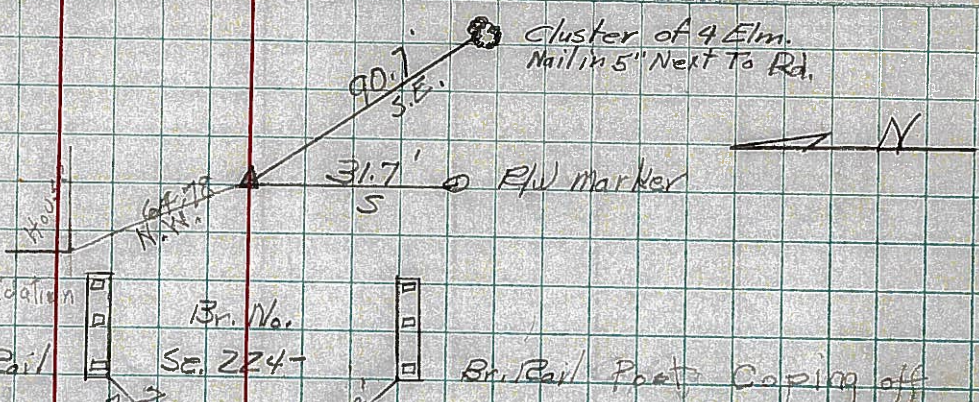 Cluster of 4 Elm.
Nail in 5" Next To Rd.
90.7'
S.E.
N
31.7'
S
R/W marker
House
64.78
N.W.
Br. No.
Se. 224-
Rail
Br. Rail Post Coping off